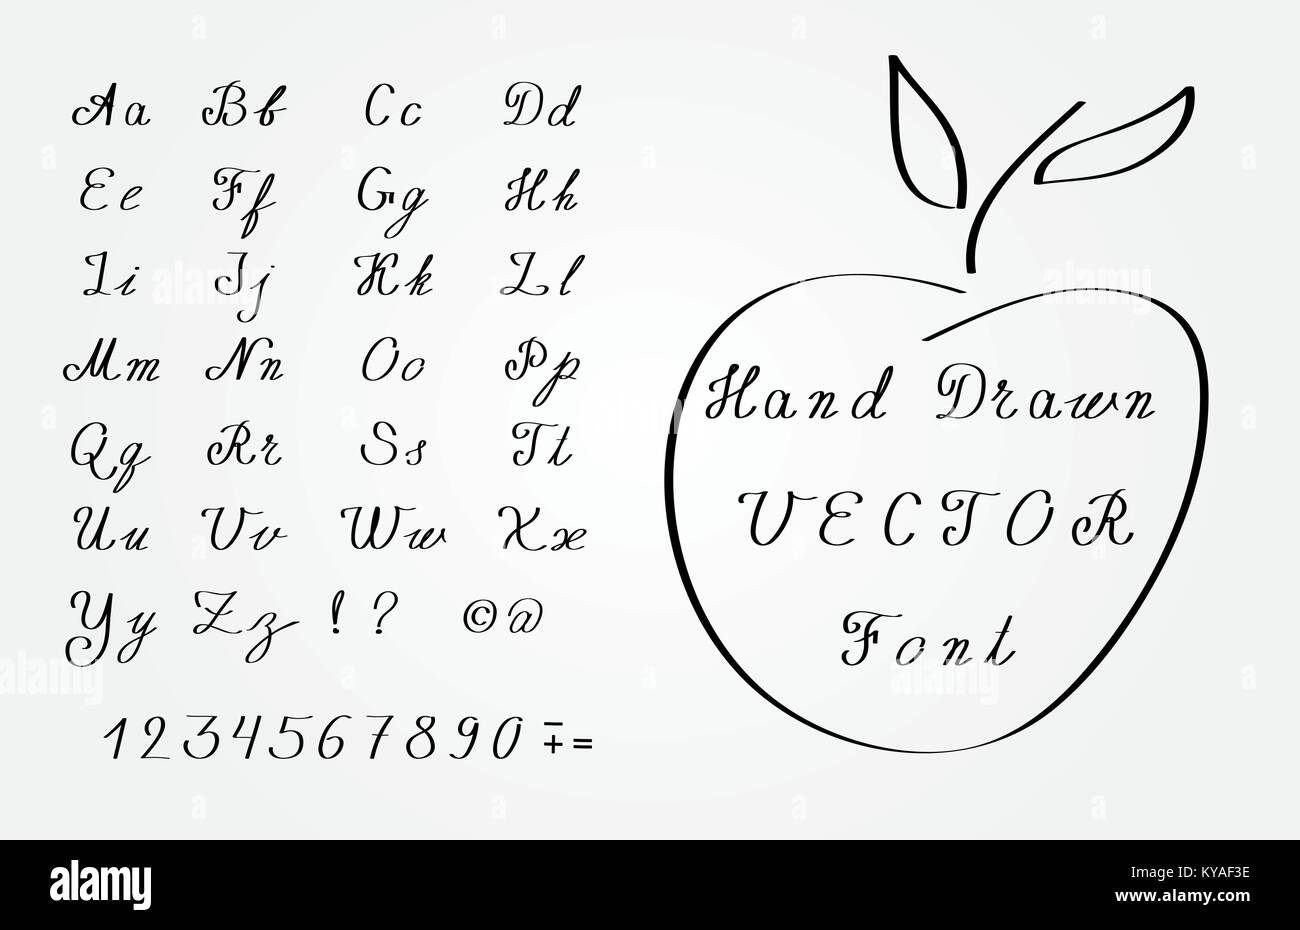 Aa Bb Cc Dd
Ee Ff Gg Hh
Ii Jj Kk Ll
Mm Nn Oo Pp
Qq Rr Ss Tt
Uu Vv Ww Xx
Yy Zz ! ? ©@
1234567890 -+=
Hand Drawn
VECTOR
Font
alamy
Image ID: KYAF3E
www.alamy.com